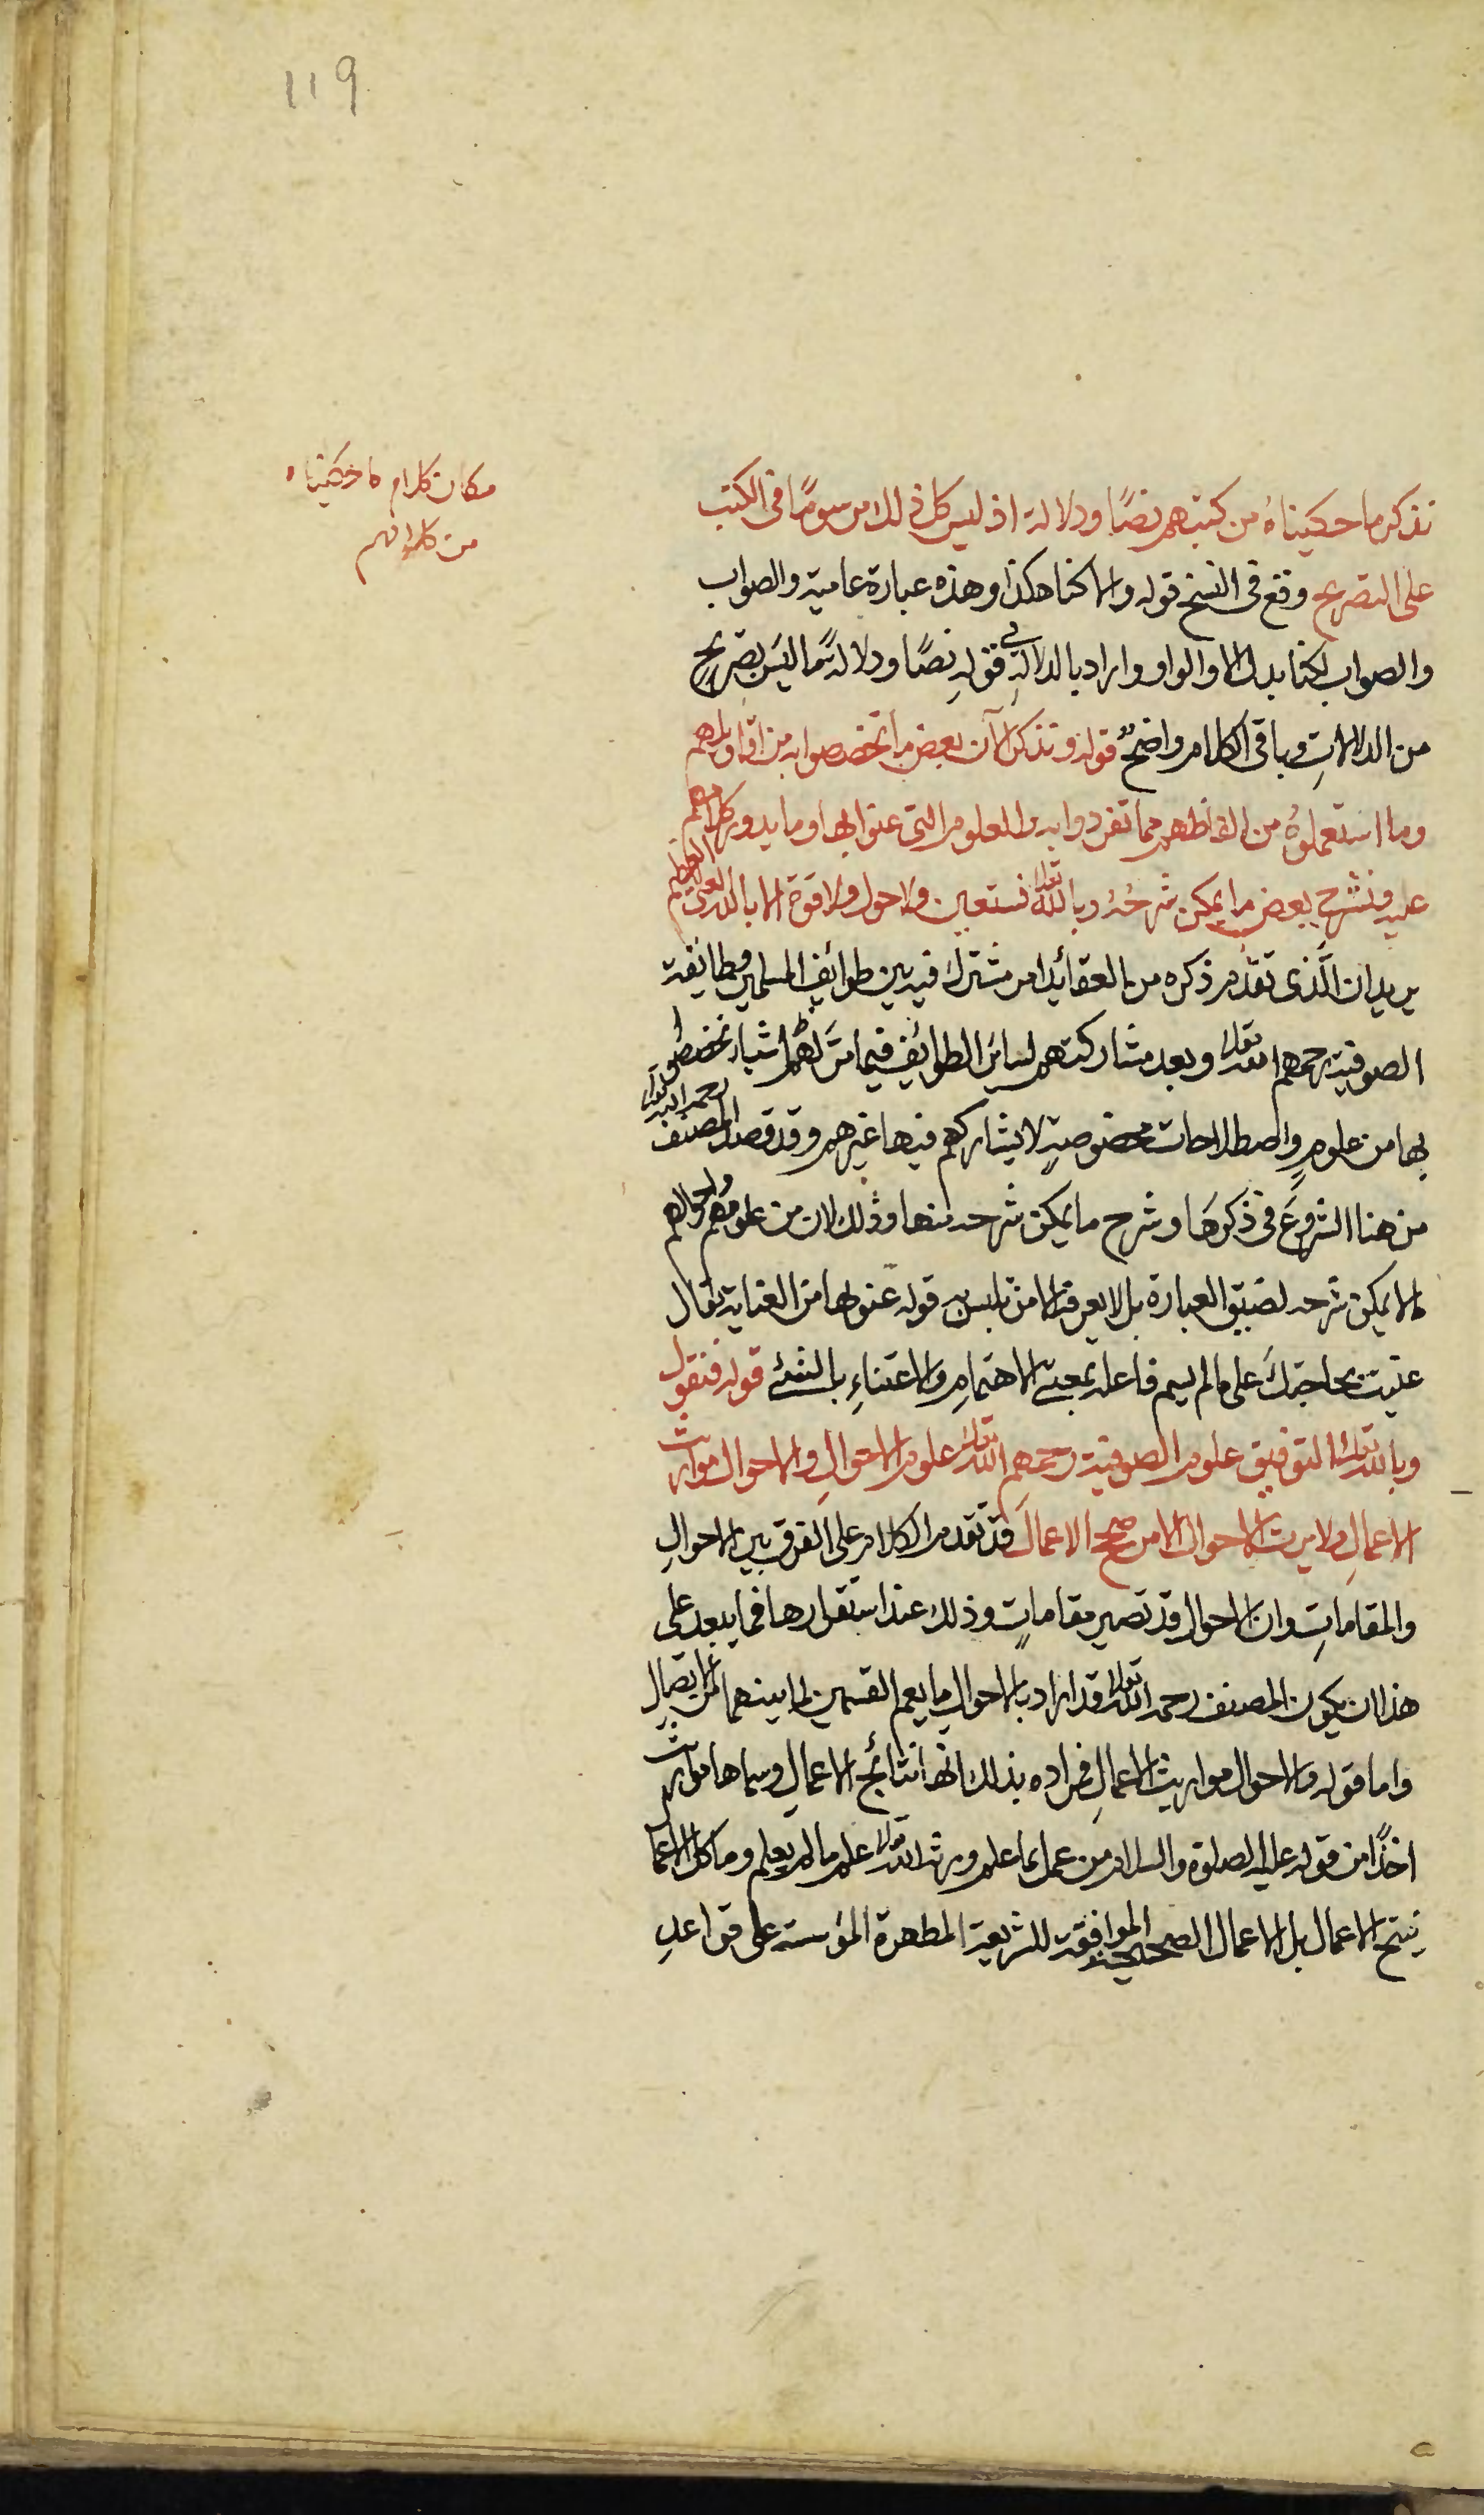 119
نذكر ما حكيناه من كتبهم نصًا ودلالة اذ ليس كل ذلك مرسومًا فى الكتب
مكان كلام ما حكيناه
من كلامهم
على التصريح وقع فى النسخ قوله والا كنا هكذا وهذه عبارة عامية والصواب
والصواب لكنا بدل الا والواو واراد بالدلالة فى قوله نصًا ودلالة ما ليس بصريحٍ
من الدلالاتِ وباقى الكلام واضحٌ قوله ونذكر الآن بعض ما تخصصوا به من اقاويلهم
وما استعملوهُ من الفاظهم مما تفردوا به والعلوم التى عنوا بها وما يدور كلامهم
عليه ونشرح بعض ما يمكن شرحُهُ وبالله تعالى نستعين ولا حول ولا قوة الا بالله العلى العظيم
يريد ان الَّذى تقدّم ذكره من العقائد امر مشترك فيه بين طوائف المسلمين وطائفة
الصوفية رحمهم الله تعالى وبعد مشاركتهم لسائر الطوائف فيما مرّ لهم اشياء تخصصوا
بها من علومٍ واصطلاحات مخصوصةٍ لا يشاركهم فيها غيرهم وقد قصد المصنف رحمه الله تعالى
من هنا الشروعَ فى ذكرهَا وشرح ما يمكن شرحه منها وذلك لان من علومهم واحوالهم
ما لا يمكن شرحه لضيق العبارة بل لا يعرفه الا من تلبس به قوله عنوا بها من العناية يقال
عنيت بحاجتكَ على ما لم يسم فاعله بمعنى الاهتمامِ والاعتناءِ بالشئ قوله فنقول
وبالله تعالى التوفيق علوم الصوفية رحمهم الله تعالى علوم الاحوالِ والاحوال مواريث
الاعمالِ ولا يرث الاحوال الا من صحح الاعمالَ قد تقدم الكلام على الفرق بين الاحوالِ
والمقاماتِ وان الاحوال قد تصير مقاماتٍ وذلك عند استقرارها فما يبعد على
هذا ان يكون المصنف رحمه الله تعالى قد اراد بالاحوال ما يعم القسمين لما بينهما من الاتصال
واما قوله والاحوال مواريث الاعمالِ فمراده بذلك انها نتائج الاعمالِ وسماها مواريث
اخذًا من قوله عليه الصلوة والسلام من عمل بما علم ورثه الله تعالى علم ما لم يعلم وما كل الاعما
ينتج الاعمال بل الاعمال الصحيحة الموافقة للشريعة المطهرة المؤسسة على قواعدِ